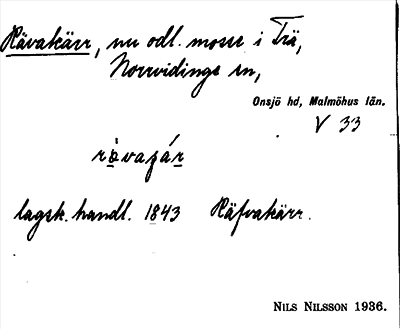 Rävakärr, nu odl. mosse i Trä,
Norrvidinge sn,
Onsjö hd, Malmöhus län.
V 33
lagsk. handl. 1843 Räfvakärr.
NILS NILSSON 1936.